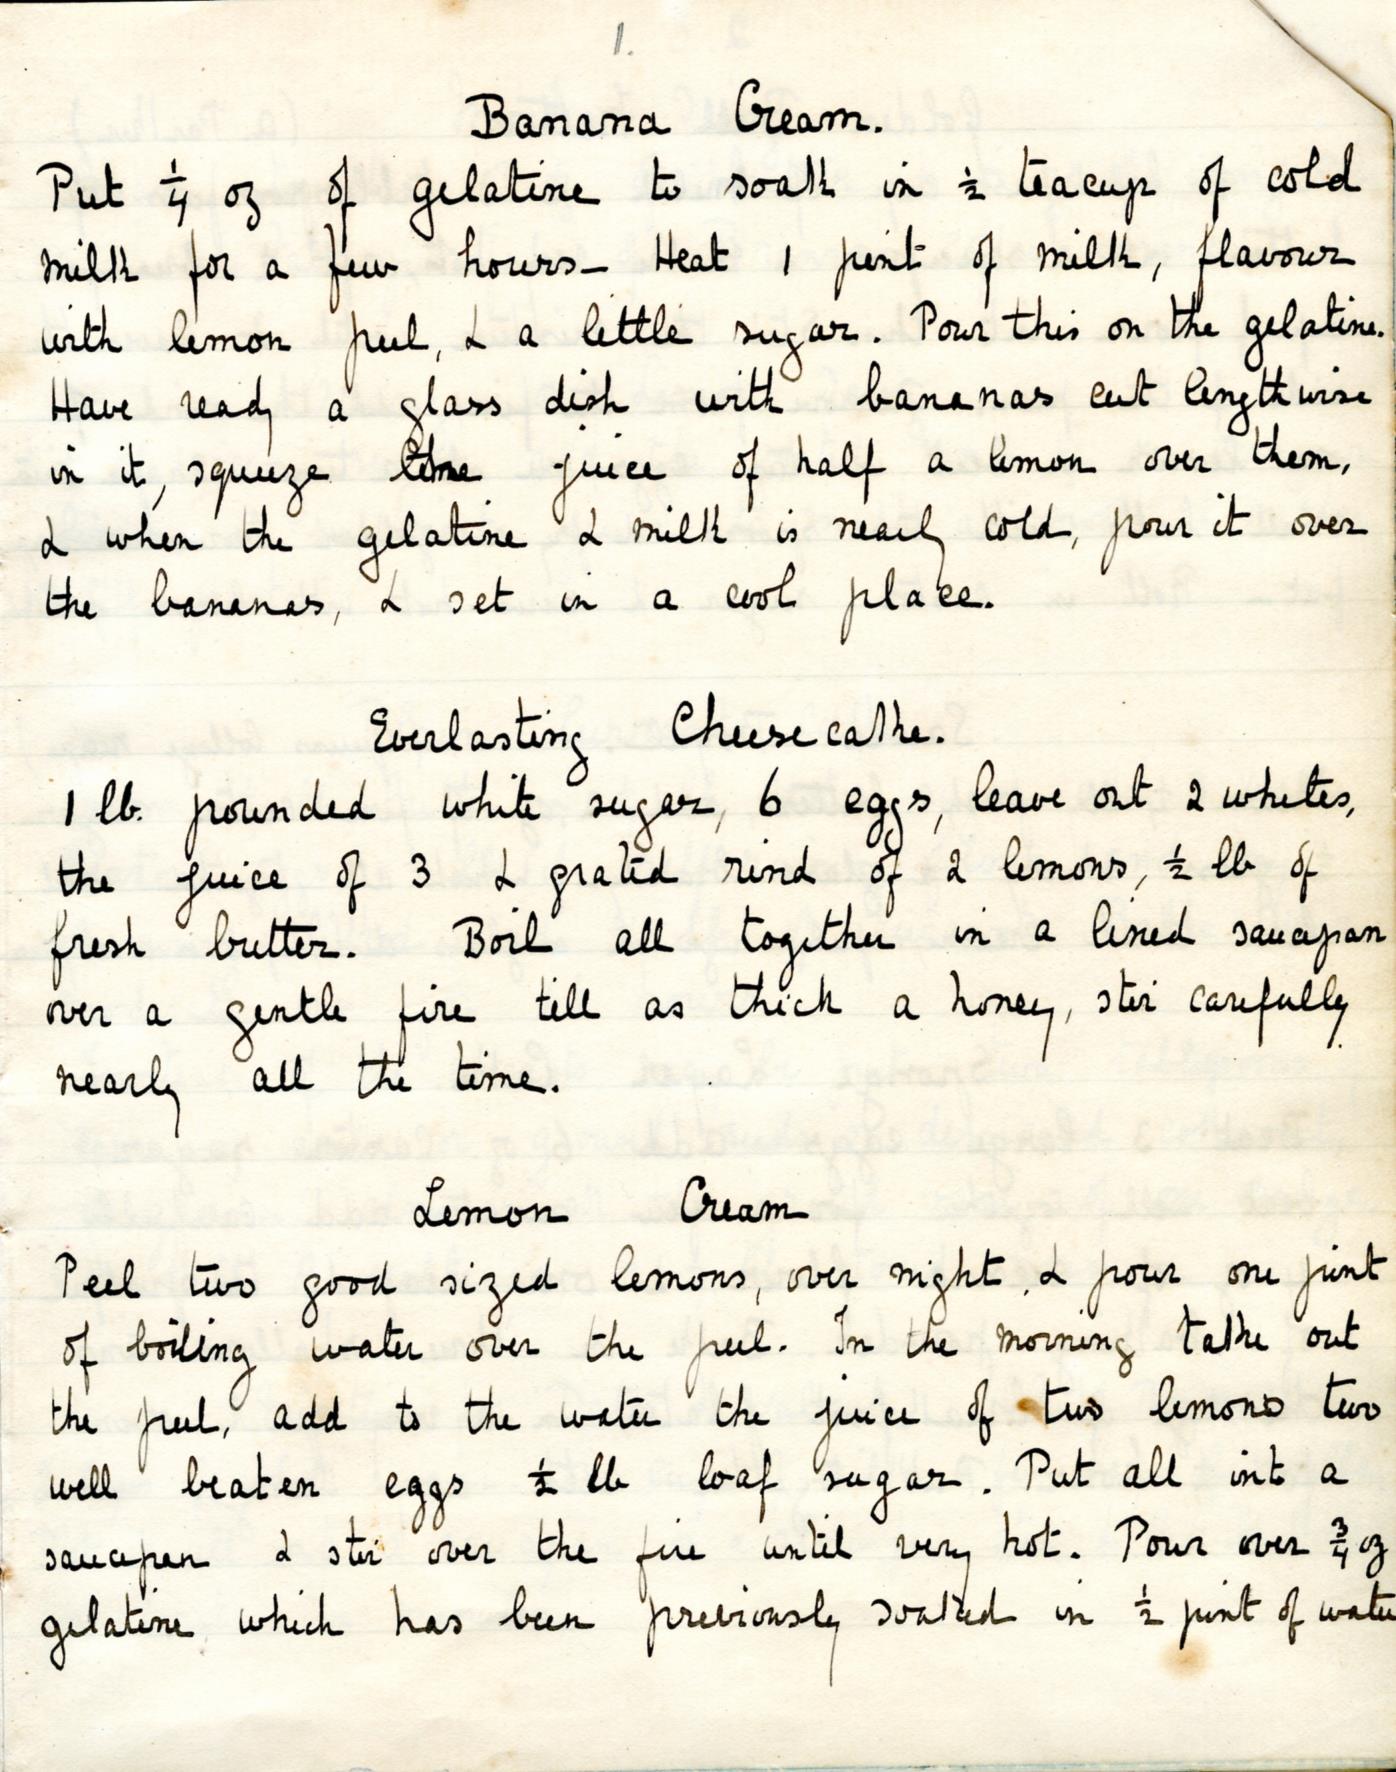 1.
Banana Cream.
Put ¼ oz of gelatine to soak in ½ teacup of cold
milk for a few hours— Heat 1 pint of milk, flavour
with lemon peel, & a little sugar. Pour this on the gelatine.
Have ready a glass dish with bananas cut lengthwise
in it, squeeze the juice of half a lemon over them,
& when the gelatine & milk is nearly cold, pour it over
the bananas, & set in a cool place.
Everlasting Cheesecake.
1 lb. pounded white sugar, 6 eggs, leave out 2 whites,
the juice of 3 & grated rind of 2 lemons, ½ lb of
fresh butter. Boil all together in a lined saucepan
over a gentle fire till as thick a honey, stir carefully
nearly all the time.
Lemon Cream
Peel two good sized lemons, over night, & pour one pint
of boiling water over the peel. In the morning take out
the peel, add to the water the juice of two lemons two
well beaten eggs ½ lb loaf sugar. Put all int a
saucepan & stir over the fire until very hot. Pour over ¾ oz
gelatine which has been previously soaked in ½ pint of water